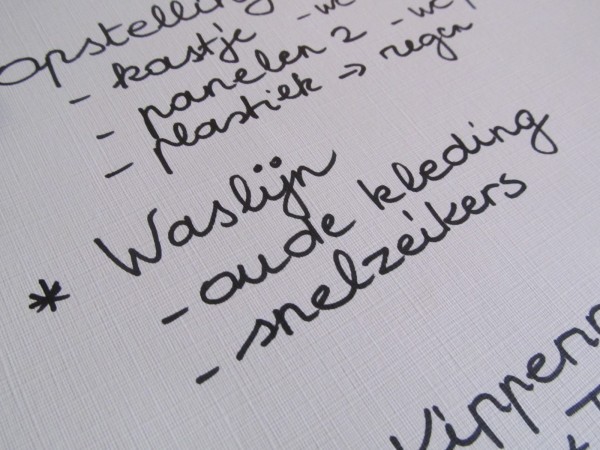 opstelling
- kastje
- panelen 2
- plastiek → regen
* Waslijn
- oude kleding
- snelzeikers